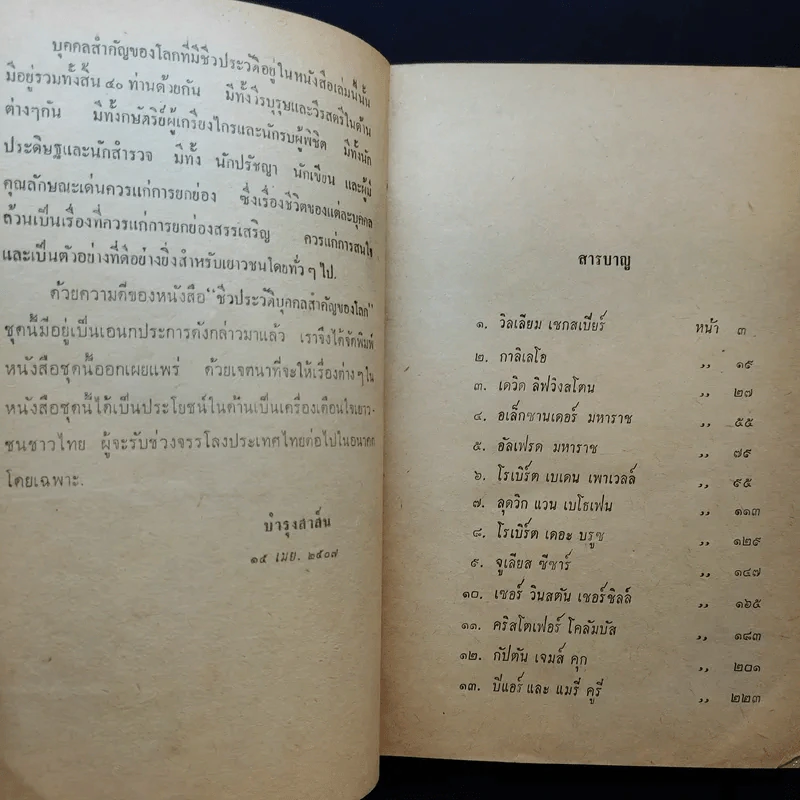 บุคคลสำคัญของโลกที่มีชีวประวัติอยู่ในหนังสือเล่มนี้นั้น
มีอยู่รวมทั้งสิ้น ๔๐ ท่านด้วยกัน มีทั้งวีรบุรุษและวีรสตรีในด้าน
ต่างๆกัน มีทั้งกษัตริย์ผู้เกรียงไกรและนักรบผู้พิชิต มีทั้งนัก
ประดิษฐและนักสำรวจ มีทั้ง นักปรัชญา นักเขียน และผู้มี
คุณลักษณะเด่นควรแก่การยกย่อง ซึ่งเรื่องชีวิตของแต่ละบุคคล
ล้วนเป็นเรื่องที่ควรแก่การยกย่องสรรเสริญ ควรแก่การสนใจ
และเป็นตัวอย่างที่ดีอย่างยิ่งสำหรับเยาวชนโดยทั่ว ๆ ไป.
ด้วยความดีของหนังสือ "ชีวประวัติบุคคลสำคัญของโลก"
ชุดนี้มีอยู่เป็นเอนกประการดังกล่าวมาแล้ว เราจึงได้จัดพิมพ์
หนังสือชุดนี้ออกเผยแพร่ ด้วยเจตนาที่จะให้เรื่องต่างๆใน
หนังสือชุดนี้ได้เป็นประโยชน์ในด้านเป็นเครื่องเตือนใจเยาว-
ชนชาวไทย ผู้จะรับช่วงจรรโลงประเทศไทยต่อไปในอนาคต
โดยเฉพาะ.
บำรุงสาส์น
๑๕ เมย. ๒๕๐๗
สารบาญ
๑. วิลเลียม เชกสเปียร์ หน้า ๓
๒. กาลิเลโอ ,, ๑๕
๓. เดวิด ลิฟวิงสโตน ,, ๒๗
๔. อเล็กซานเดอร์ มหาราช ,, ๕๕
๕. อัลเฟรด มหาราช ,, ๗๕
๖. โรเบิร์ต เบเดน เพาเวลล์ ,, ๙๕
๗. ลุดวิก แวน เบโธเฟน ,, ๑๑๓
๘. โรเบิร์ต เดอะ บรูซ ,, ๑๒๙
๙. จูเลียส ซีซาร์ ,, ๑๔๗
๑๐. เซอร์ วินสตัน เชอร์ชิลล์ ,, ๑๖๕
๑๑. คริสโตเฟอร์ โคลัมบัส ,, ๑๘๓
๑๒. กัปตัน เจมส์ คุก ,, ๒๐๑
๑๓. ปีแอร์ และ แมรี่ คูรี่ ,, ๒๒๓